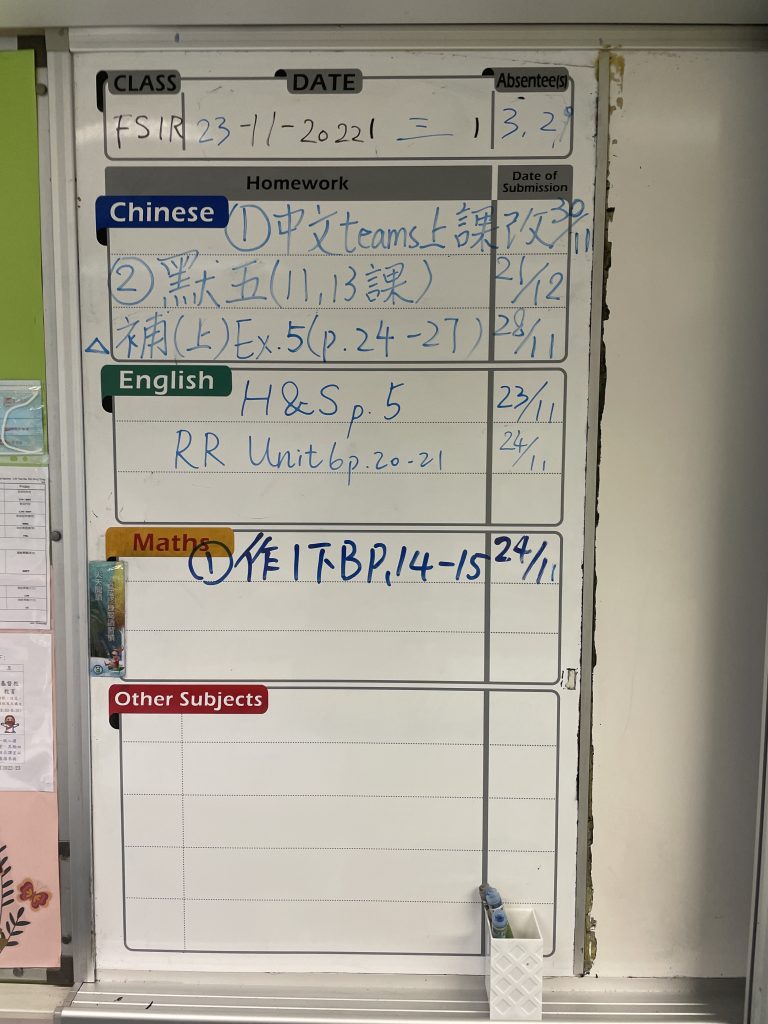 CLASS DATE Absentee(s)
FS1R 23-11-2022 ( 三 ) 3, 2
Homework Date of Submission
Chinese ①中文teams上課改 30/11
②默五(11,13課) 21/12
△補(上)Ex.5(p.24-27) 28/11
English H&S p.5 23/11
RR Unit6p.20-21 24/11
Maths ①作1下B P.14-15 24/11
Other Subjects